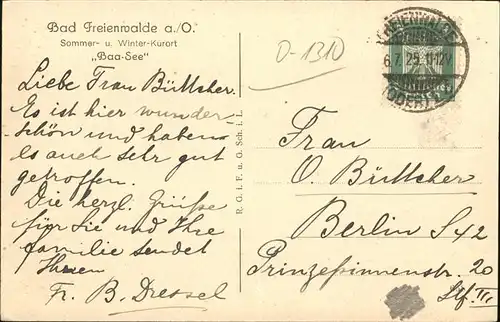 Bad Freienwalde a./O.
Sommer- u. Winter-Kurort
„Baa-See"
Liebe Frau Büttcher.
Es ist hier wunder-
schön und haben
es auch sehr gut
getroffen.
Die herzl. Grüße
für Sie und Ihre
Familie sendet
Ihnen
Fr. B. Dressel
R. G. i. F. u. O. Sch. i. L.
0-1310
FREIENWALDE
6.7.25.11-12V
(ODER)
Frau
O. Büttcher
Berlin S42
Prinzessinnenstr. 20
Stf. III